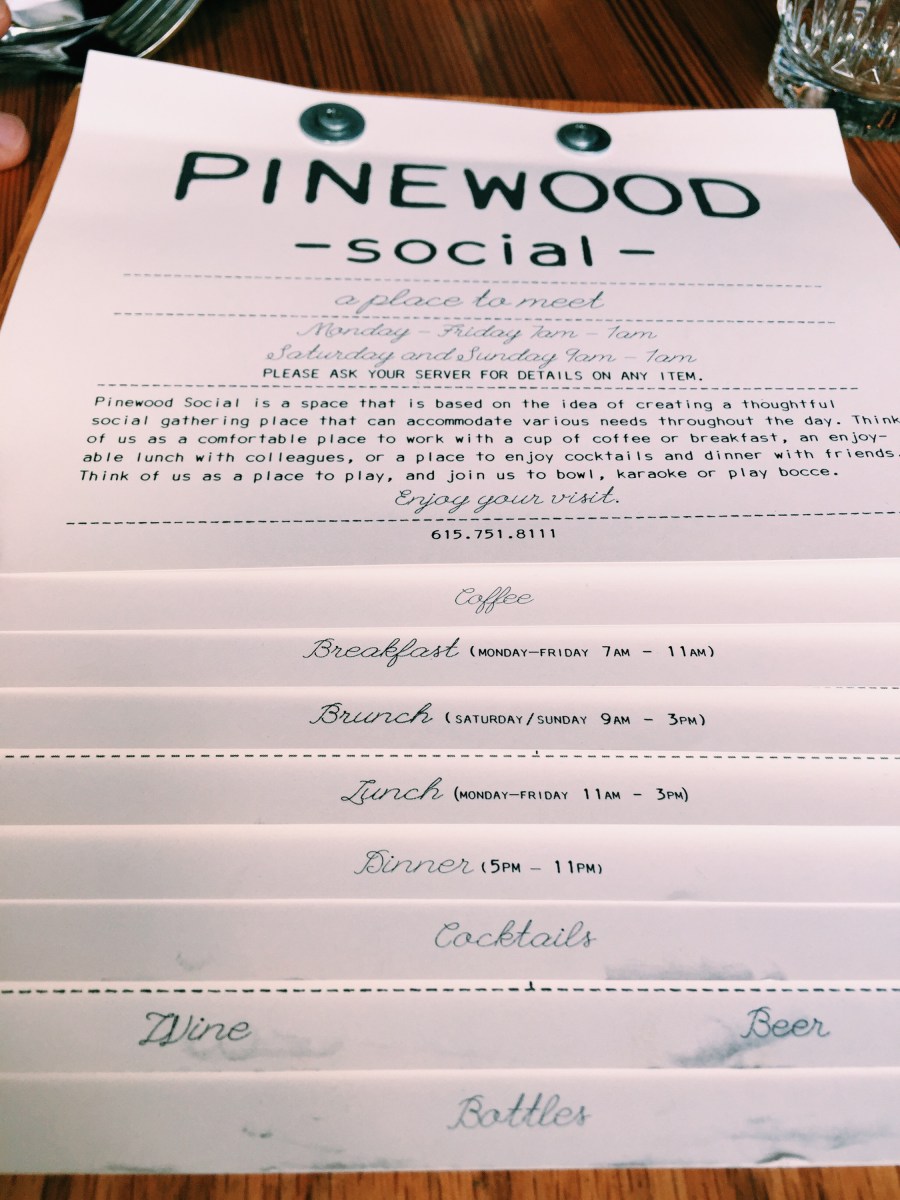 PINEWOOD
-social-
a place to meet
Monday - Friday 7am - 1am
Saturday and Sunday 9am - 1am
PLEASE ASK YOUR SERVER FOR DETAILS ON ANY ITEM.
Pinewood Social is a space that is based on the idea of creating a thoughtful
social gathering place that can accommodate various needs throughout the day. Think
of us as a comfortable place to work with a cup of coffee or breakfast, an enjoy-
able lunch with colleagues, or a place to enjoy cocktails and dinner with friends.
Think of us as a place to play, and join us to bowl, karaoke or play bocce.
Enjoy your visit.
615.751.8111
Coffee
Breakfast (MONDAY-FRIDAY 7AM - 11AM)
Brunch (SATURDAY/SUNDAY 9AM - 3PM)
Lunch (MONDAY-FRIDAY 11AM - 3PM)
Dinner (5PM - 11PM)
Cocktails
Wine Beer
Bottles